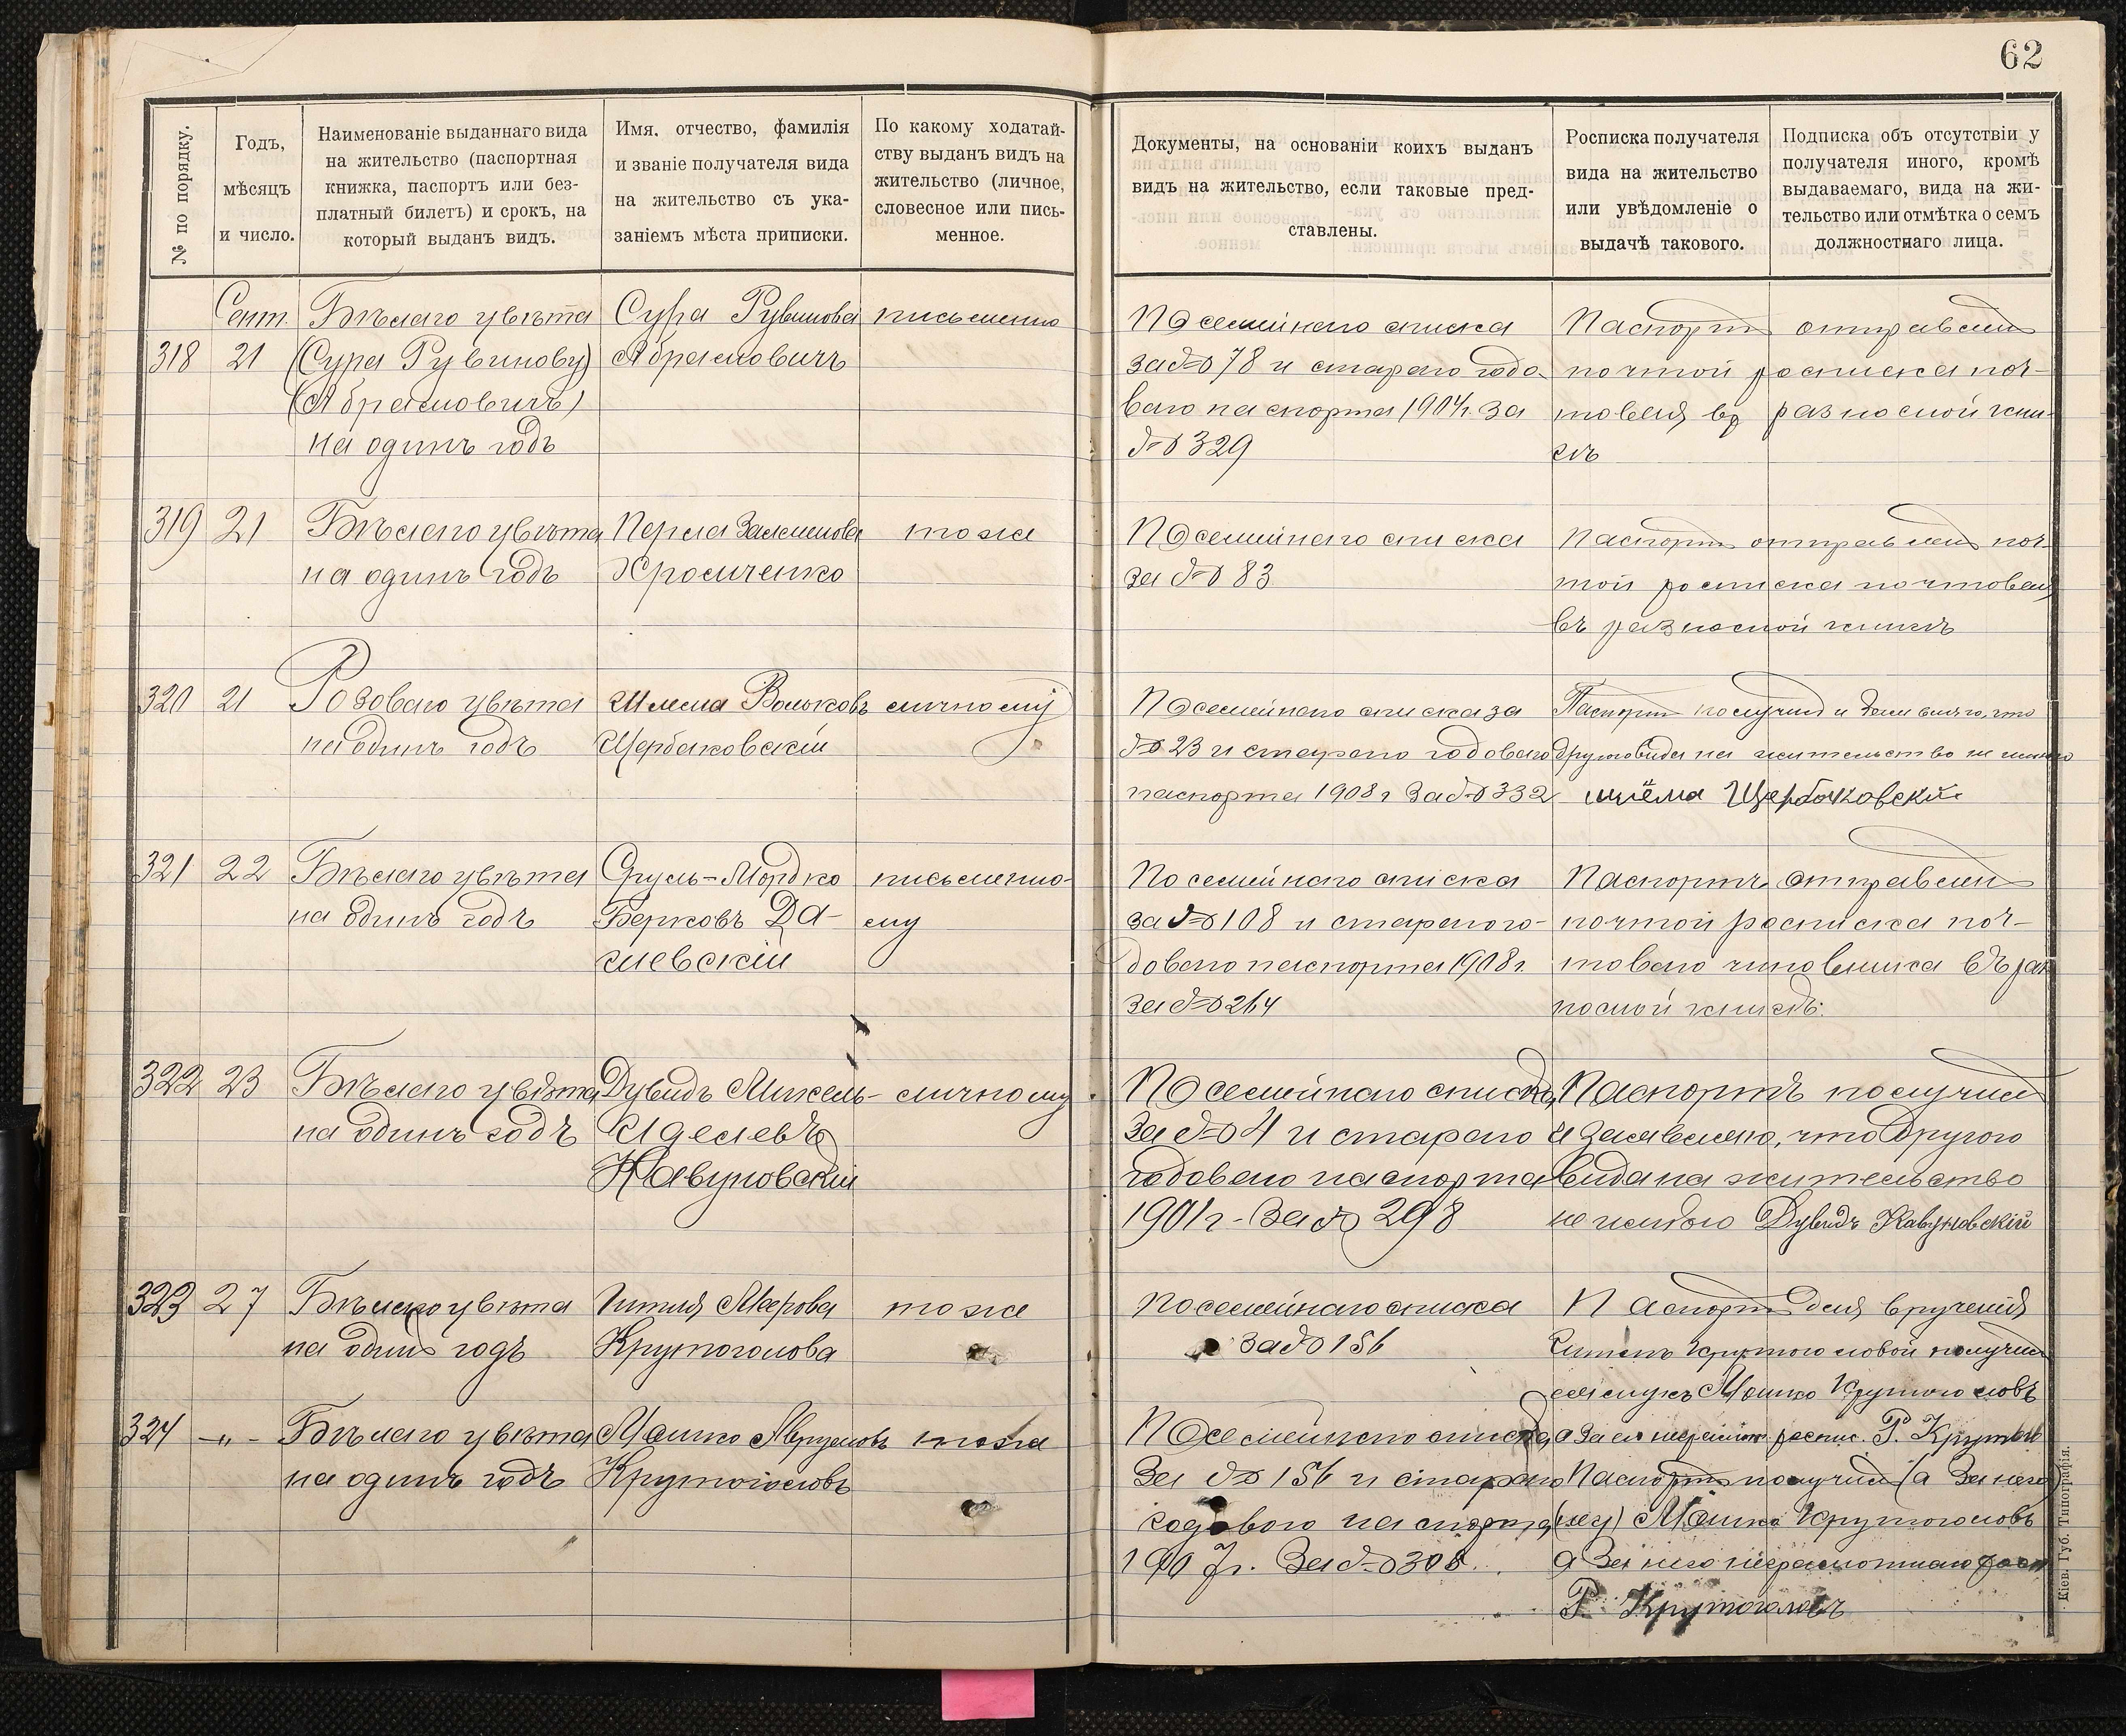 62
№ по порядку.
Годъ,
мѣсяцъ
и число.
Наименованіе выданнаго вида
на жительство (паспортная
книжка, паспортъ или без-
платный билетъ) и срокъ, на
который выданъ видъ.
Имя. отчество, фамилія
и званіе получателя вида
на жительство съ ука-
заніемъ мѣста приписки.
По какому ходатай-
ству выданъ видъ на
жительство (личное,
словесное или пись-
менное.
Документы, на основаніи коихъ выданъ
видъ на жительство, если таковые пред-
ставлены.
Росписка получателя
вида на жительство
или увѣдомленіе о
выдачѣ такового.
Подписка объ отсутствіи у
получателя иного, кромѣ
выдаваемаго, вида на жи-
тельство или отмѣтка о семъ
должностнаго лица.
Сент.
318 21
Бѣлаго цвѣта
(Сура Рувинову)
(Абрамовичъ)
на одинъ годъ
Сура Рувинова
Абрамовичъ
письменно
По семейнаго списка
за № 78 и стараго годо-
ваго паспорта 1904г. за
№ 329
Паспортъ отправленъ
почтой росписка поч-
товая въ разносной кни-
гѣ
319 21
Бѣлаго цвѣта
на одинъ годъ
Перла Залменова
Хромченко
тоже
По семейнаго списка
за № 83
Паспортъ отправленъ поч-
той росписка почтовая
въ разносной книгѣ
320 21
Розоваго цвѣта
на одинъ годъ
Шлема Вольковъ
Щербаковскій
личному
По семейнаго списка за
№ 23 и стараго годоваго
паспорта 1908 г за № 332
Паспортъ получилъ и
другого вида на жительство не имѣю
Щербаковскій
321 22
Бѣлаго цвѣта
на одинъ годъ
Сруль-Мордко
Берковъ Да-
шевскій
письменно-
му
По семейнаго списка
за № 108 и стараго го-
доваго паспорта 1908 г.
за № 264
Паспортъ отправленъ
почтой росписка поч-
товаго чиновника въ раз
носной книгѣ.
322 23
Бѣлаго цвѣта
на одинъ годъ
Дувидъ Михель-
Иделевъ
Кавуновскій
личному
По семейнаго списка
за № 4 и стараго
годоваго паспорта
1901 г. за № 298
Паспортъ получилъ
и заявляю, что другого
вида на жительство
не имѣю Дувидъ Кавуновскій
323 27
Бѣлаго цвѣта
на одинъ годъ
Гитля Меерова
Крутоголова
тоже
По семейнаго списка
за № 156
Паспортъ для врученія
Гитлѣ Крутоголовой получилъ
ея мужъ Мошко Крутоголовъ
а за его неграмотн. роспис. Р. Крутог
324 -"-
Бѣлаго цвѣта
на одинъ годъ
Мошко
Крутоголовъ
тоже
По семейнаго списка
за № 156 и стараго
годового паспорта
1907г. за № 308.
Паспортъ получилъ (а за него)
Мошко Крутоголовъ
а за него неграмотнаго росп
Р. Крутоголовъ
Кіев. Губ. Типографія.